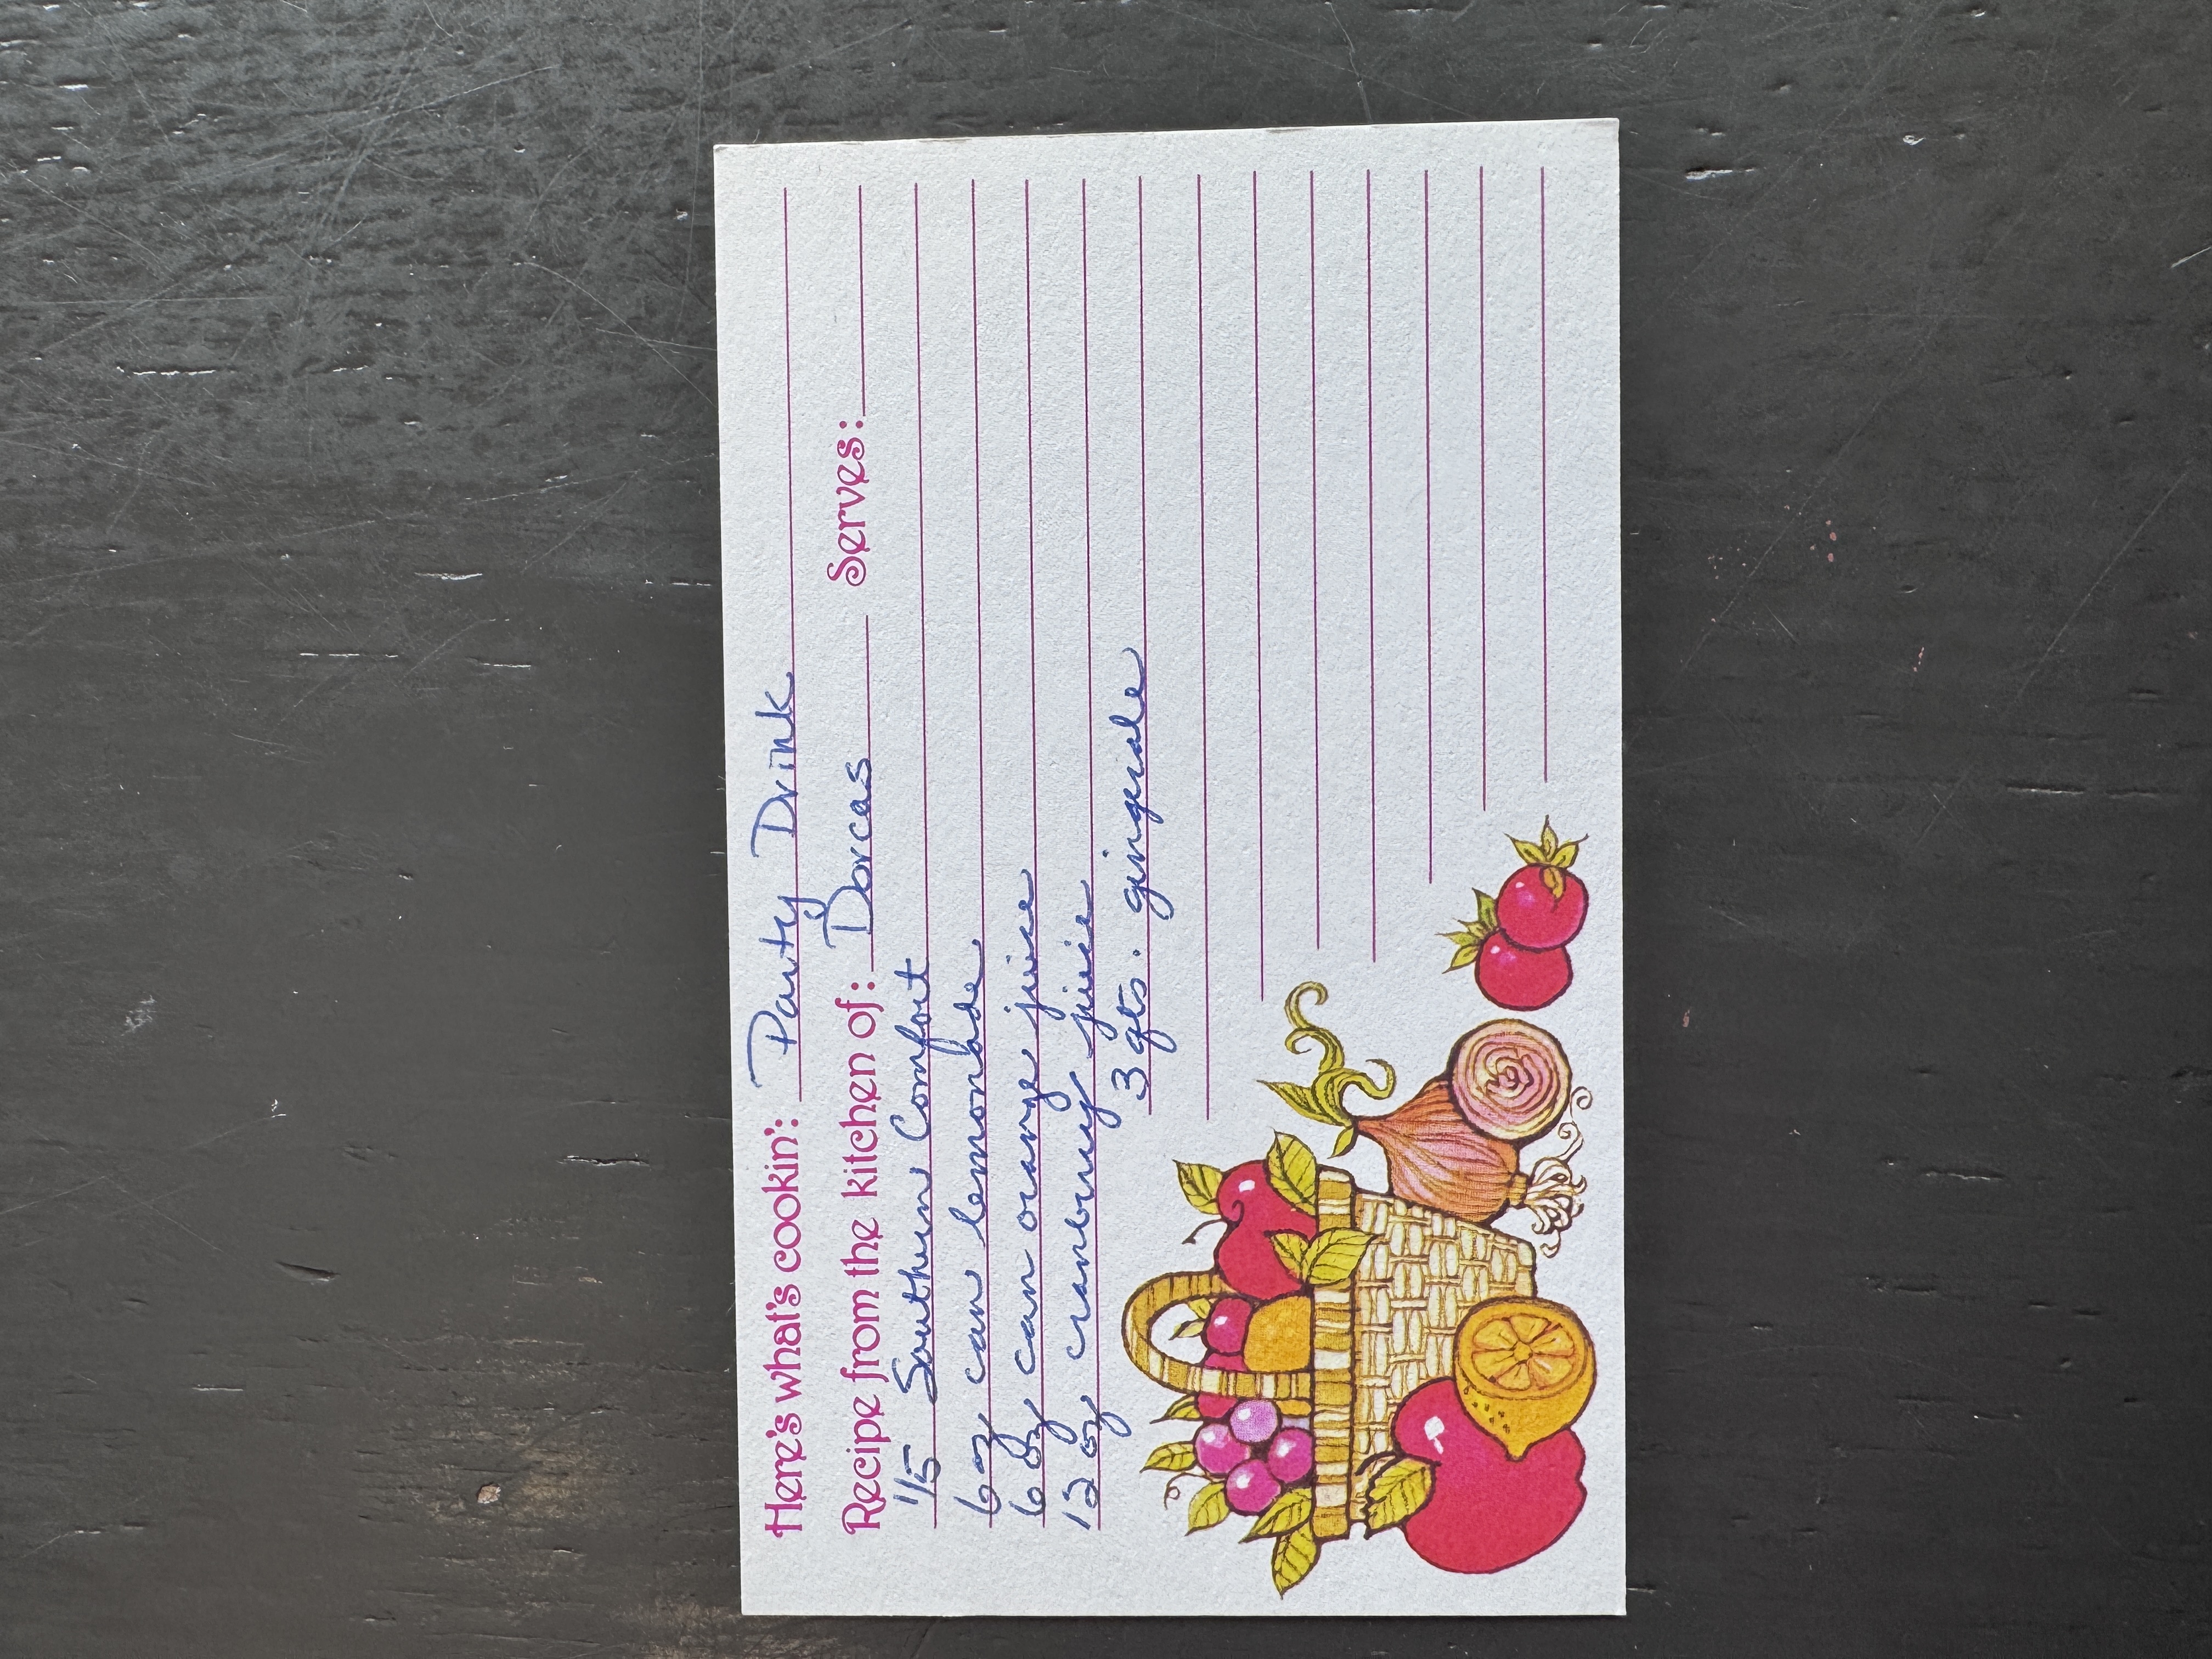 Here's what's cookin': Party Drink
Recipe from the kitchen of: Dorcas Serves:
1/5 Southern Comfort
6 oz can lemonade
6 oz can orange juice
12 oz cranberry juice
3 qts. gingerale